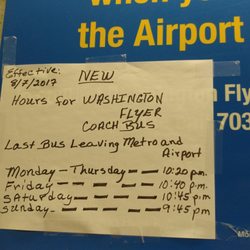 the Airport
n Fly
703
Effective:
8/7/2017
NEW
Hours for WASHINGTON
FLYER
COACH BUS
Last Bus Leaving Metro and
Airport
Monday - Thursday — — — 10:20 p.m.
Friday — — — — 10:40 p.m.
Saturday — — — 10:45 p.m
Sunday — — — — 9:45 pm